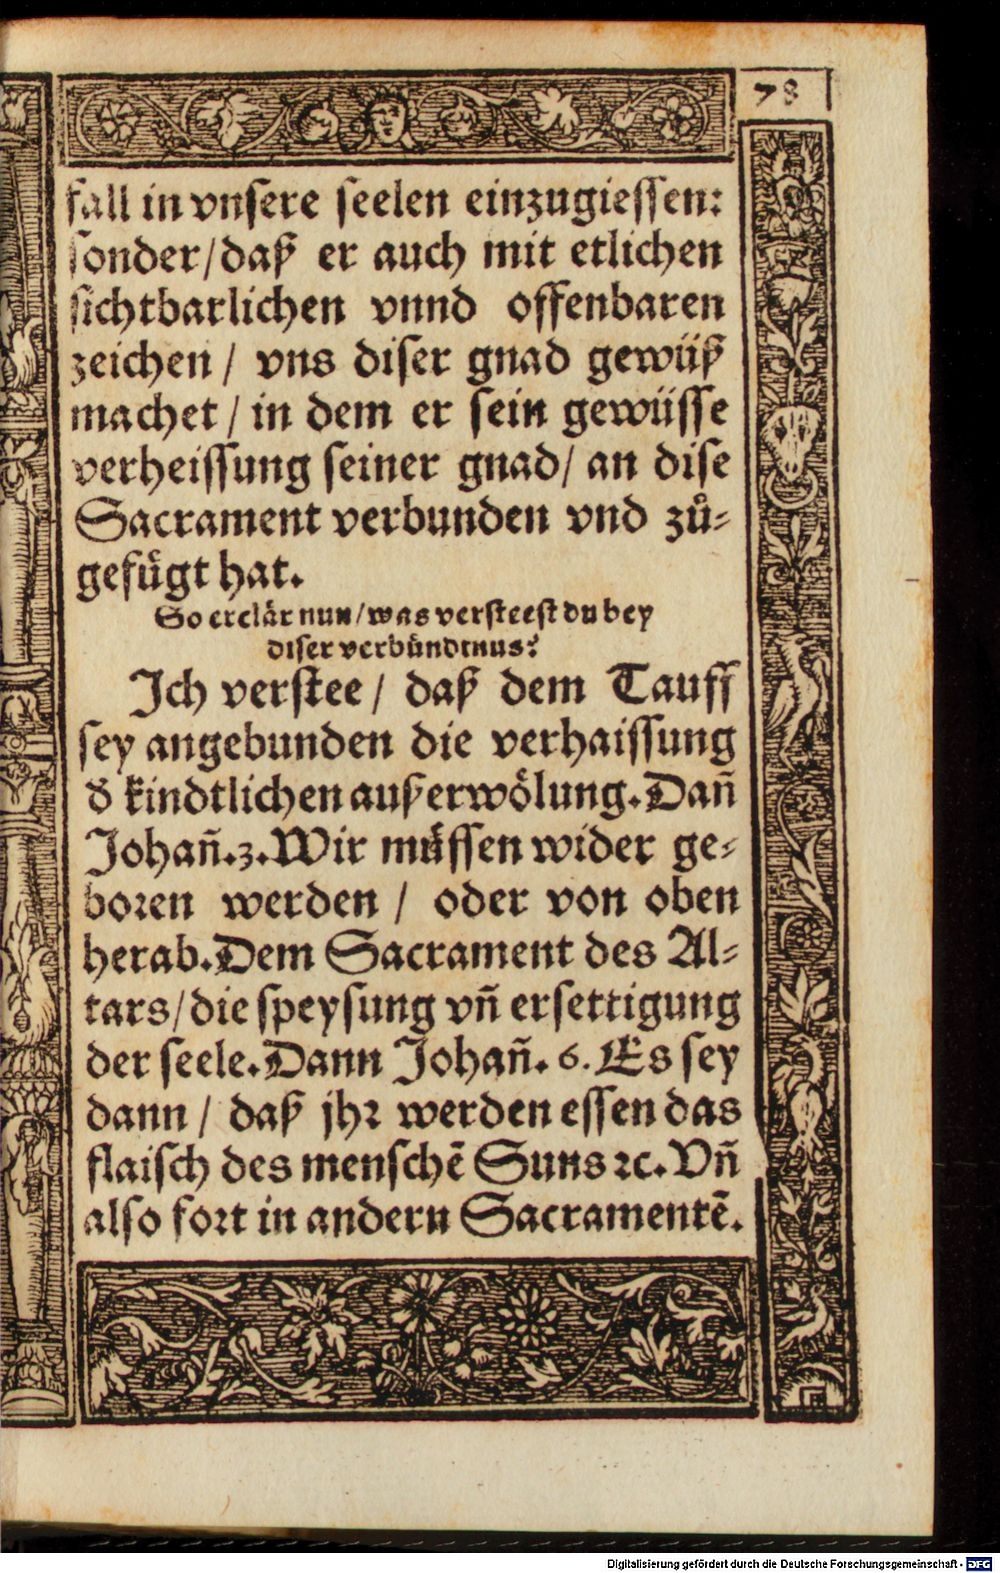 78
fall in vnsere seelen einzugiessen:
sonder/daß er auch mit etlichen
sichtbarlichen vnnd offenbaren
zeichen / vns diser gnad gewüß
machet / in dem er sein gewüsse
verheissung seiner gnad/ an dise
Sacrament verbunden vnd zů-
gefügt hat.
So erclär nun/was versteest du bey
diser verbündtnus?
Ich verstee / daß dem Tauff
sey angebunden die verhaissung
ď kindtlichen außerwölung. Dañ
Johañ.3. Wir müssen wider ge-
boren werden / oder von oben
herab. Dem Sacrament des Al-
tars/die speysung vñ ersettigung
der seele. Dann Johañ. 6. Es sey
dann / daß jhr werden essen das
flaisch des menschē Suns ꝛc. Vñ
also fort in andern Sacramentē.
Digitalisierung gefördert durch die Deutsche Forschungsgemeinschaft - DFG